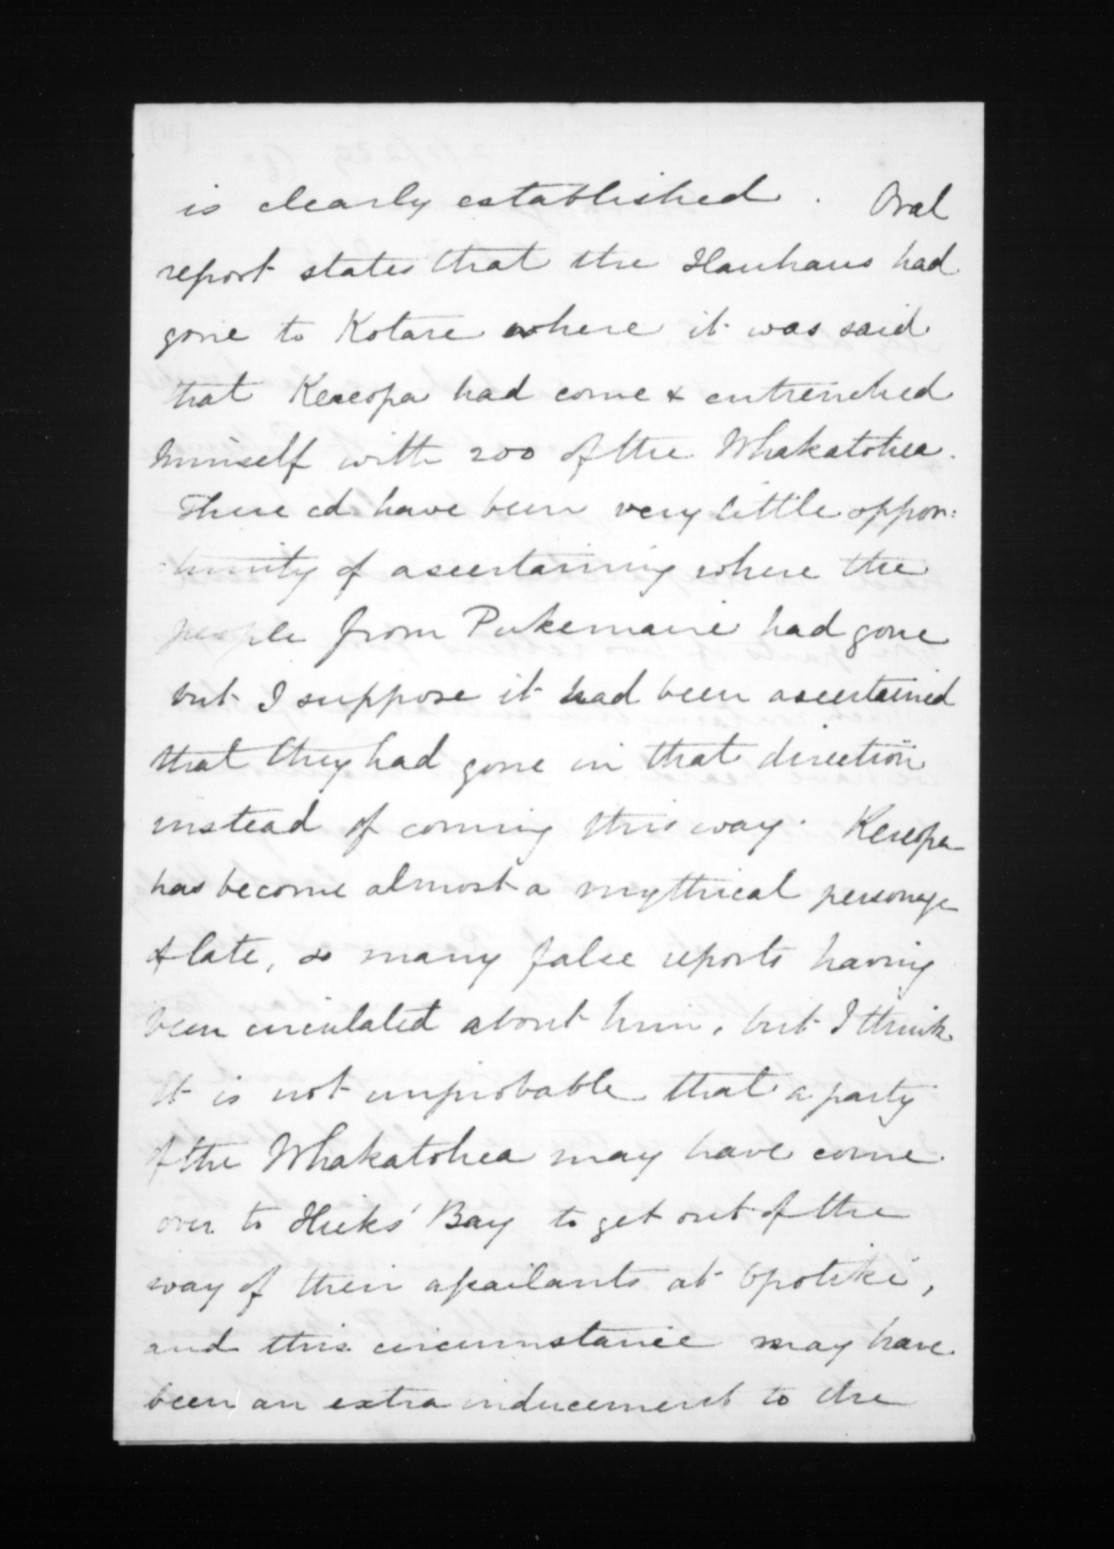 is clearly established. Oral
report states that the Hauhaus had
gone to Kotare where it was said
that Kereopa had come & entrenched
himself with 200 of the Whakatohea.
There cd. have been very little oppor:
:tunity of ascertaining where the
people from Pukemaire had gone
but I suppose it had been ascertained
that they had gone in that direction
instead of coming this way. Kereopa
has become almost a mythical personage
of late, so many false reports having
been circulated about him, but I think
it is not improbable that a party
of the Whakatohea may have come
over to Hicks' Bay to get out of the
way of their assailants at Opotiki,
and this circumstance may have
been an extra inducement to the